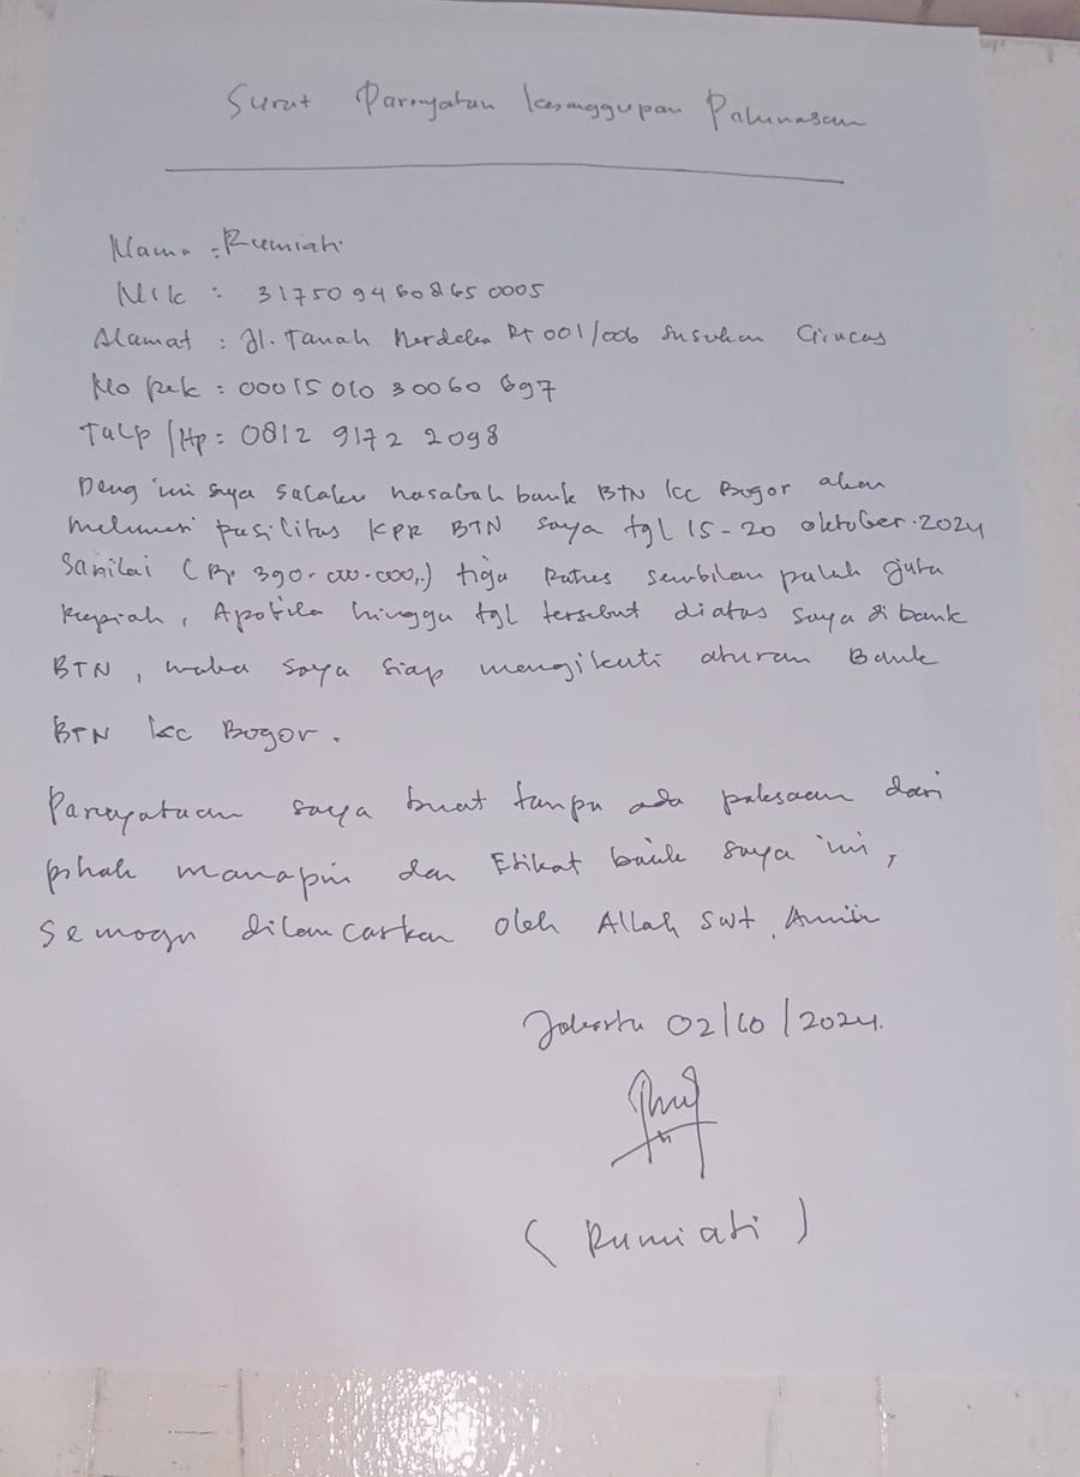 Surat Parnyatan kesanggupan Palunasan
Nama : Rumiati
Nik : 3175094608650005
Alamat : Jl. Tanah Merdeka Rt 001/006 Susukan Ciracas
No rek : 00015 010 30060 697
Talp/Hp : 0812 9172 2098
Deng ini saya salaku nasabah bank BTN kc Bogor akan
melunasi pasilitas KPR BTN saya tgl 15-20 oktober.2024
Sanilai (Rp 390.000.000,.) tiga Ratus sembilan puluh juta
Rupiah, Apabila hingga tgl tersebut diatas saya di bank
BTN, maka saya siap mengikuti aturan Bank
BTN kc Bogor.
Parnyataan saya buat tanpa ada paksaan dari
pihak manapin dan Etikat baik saya ini,
Semoga dilancarkan oleh Allah swt, Amiin
Jakarta 02/10/2024.
( Rumiati )